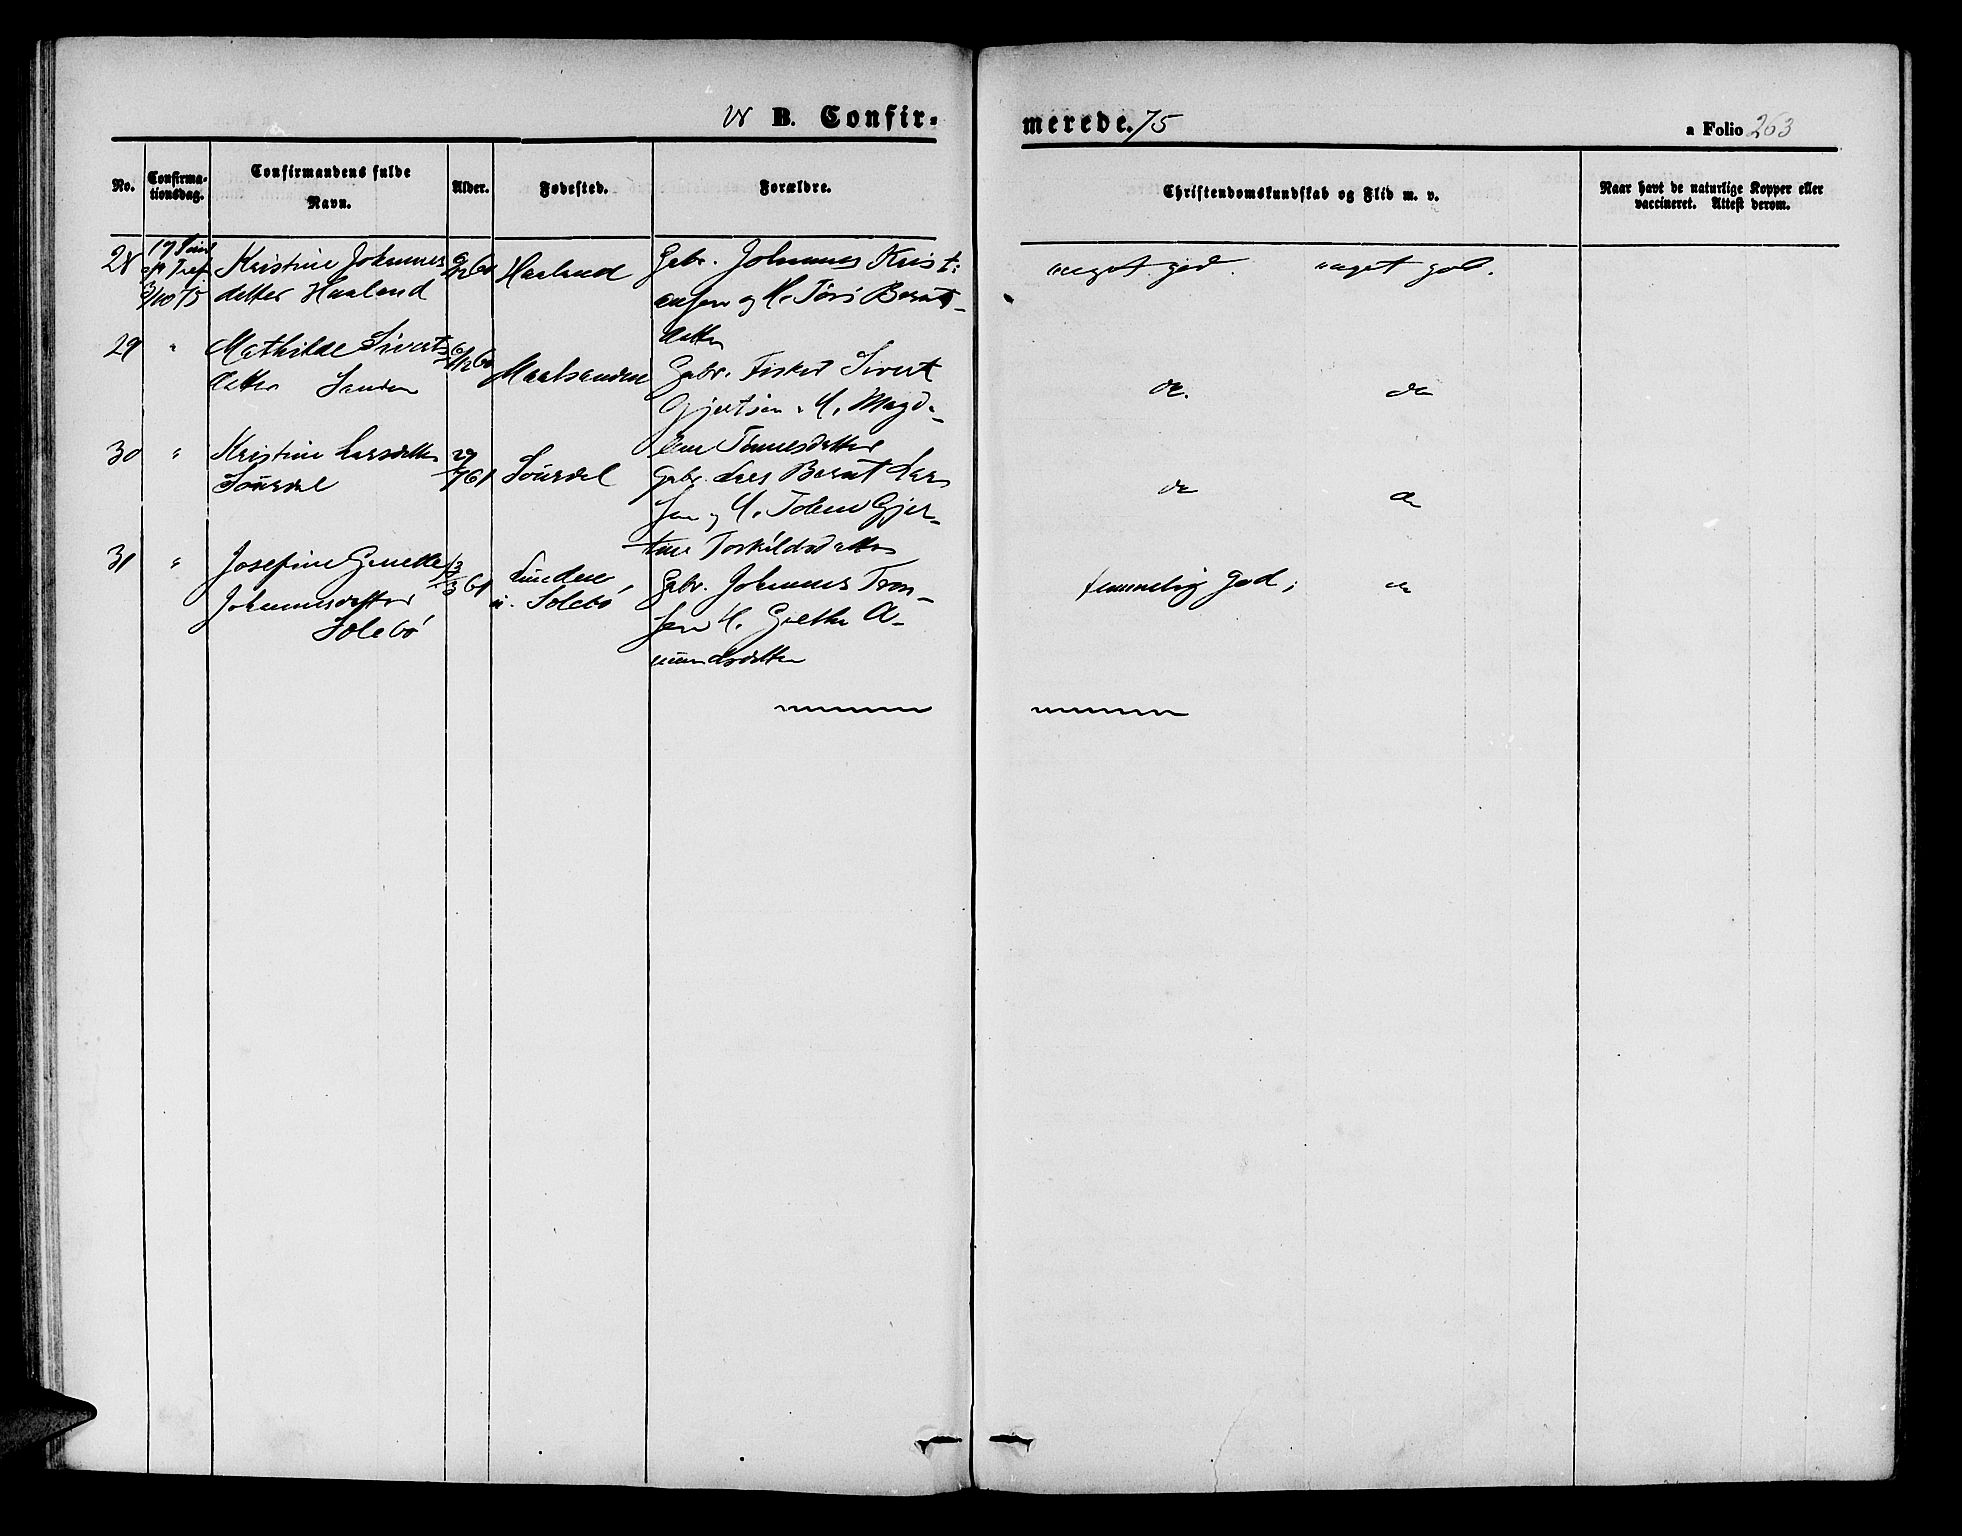 B. Confir-
merede. 75
a Folio 263
No.
Confirma-
tionsdag.
Confirmandens fulde
Navn.
Alder.
Fødested.
Forældre.
Christendomskundskab og Flid m. v.
Naar havt de naturlige Kopper eller
vaccineret. Attest derom.
28
17 Sønd
3/10 75
Kristine Johannes
datter Haaland
9/12 60
Haaland
Gbr. Johannes Kristi
ansen og H. Tøri Bernt-
datter
meget god.
meget god.
29
"
Mathilde Siverts
datter Sanden
6/12 60
Maalsanden
Gbr. Fisker Sivert
Gjertsen H. Magda-
lene Tønnesdatter
do.
do
30
"
Kristine Larsdatter
Søurdal
29
61
Søurdal
Gbr. Lars Bernt Lar
sen og H. Tolene Gjer-
tine Torkildsdatter
do
do
31
"
Josefine Gunelle
Johannesdatter
Solebø
13/3 61
Lunden
u. Solebø
Gbr. Johannes Tron-
sen H. Grethe A-
mundsdatter
temmelig god;
do